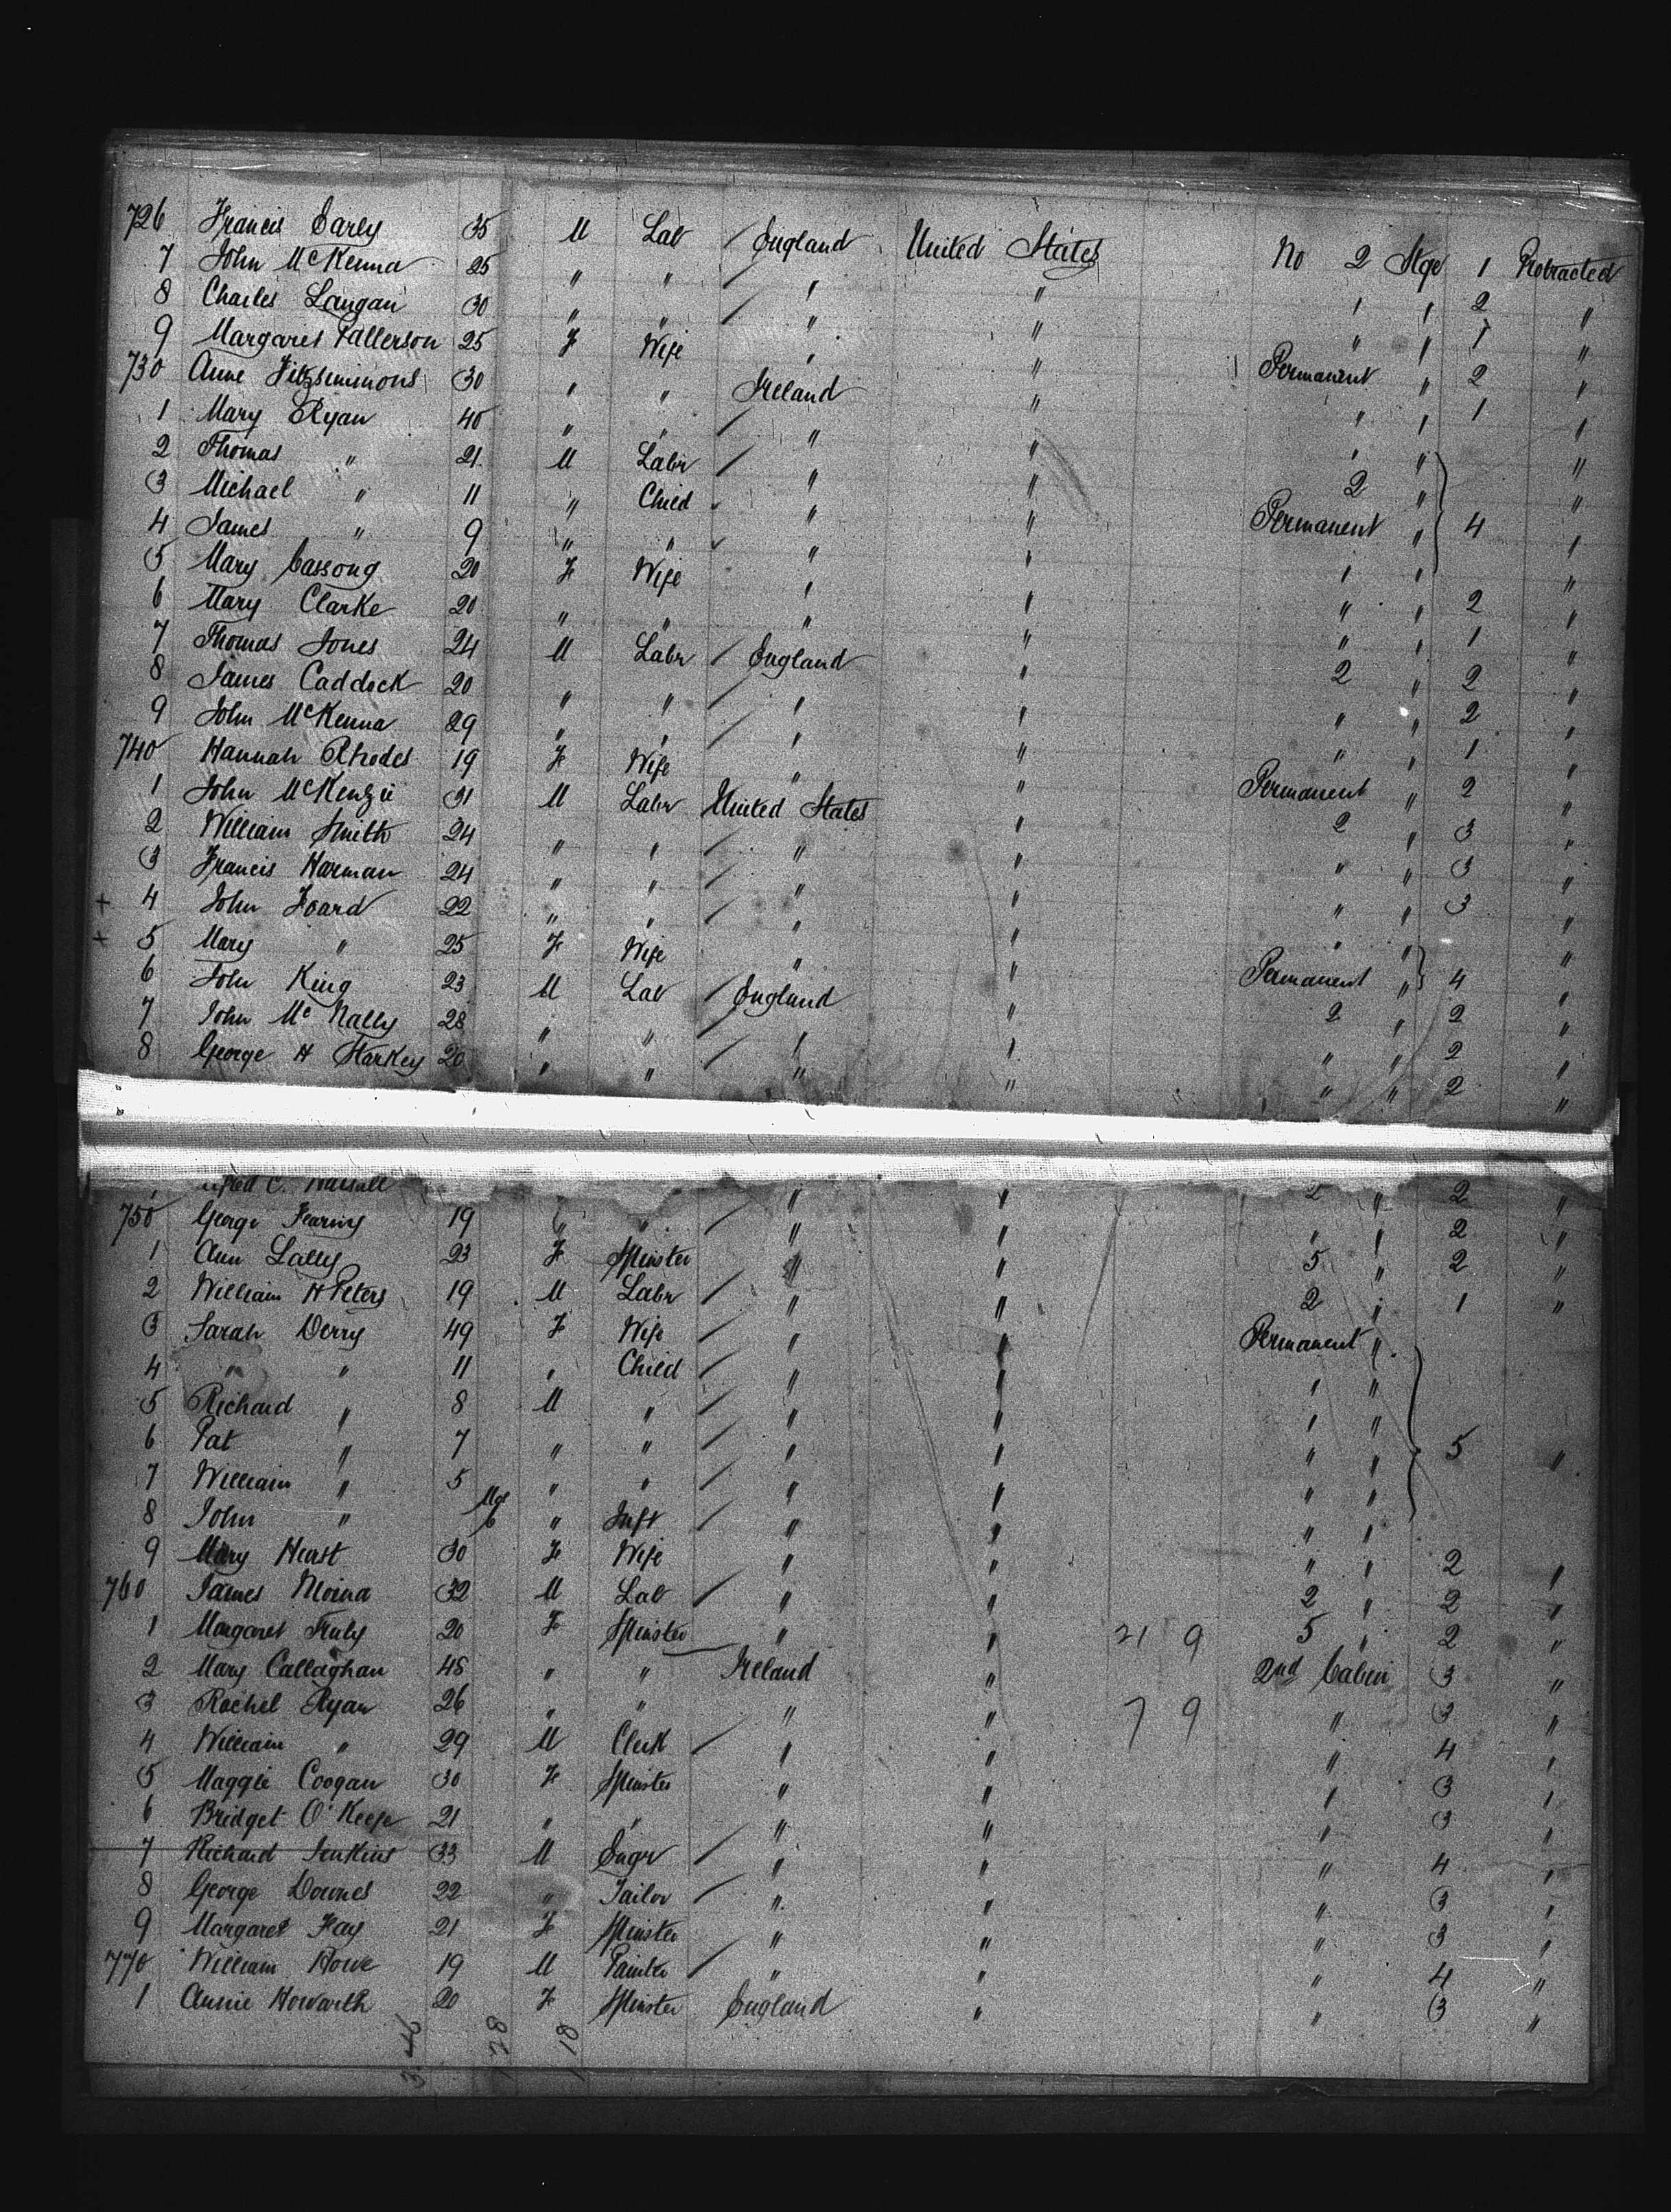 726 Francis Early 35 M Lab / England United States No 2 Stge 1 Protracted
7 John McKenna 25 " " / " " " " 2 "
8 Charles Langan 30 " " / " " " " 1 "
9 Margaret Patterson 25 F Wife " " Permanent " 2 "
730 Anne Fitzsimmons 30 " " Ireland " " " 1 "
1 Mary Ryan 40 " " / " " " " "
2 Thomas " 21 M Labr / " " 2 " "
3 Michael " 11 " Child " " Permanent " 4 "
4 James " 9 " " " " " " "
5 Mary Cassong 20 F Wife " " " " 2 "
6 Mary Clarke 20 " " " " " " 1 "
7 Thomas Jones 24 M Labr / England " 2 " 2 "
8 James Caddock 20 " " / " " " " 2 "
9 John McKenna 29 " " / " " " " 1 "
740 Hannah Rhodes 19 F Wife " " Permanent " 2 "
1 John McKenzie 31 M Labr United States " 2 " 3 "
2 William Smith 24 " " / " " " " 3 "
3 Francis Harman 24 " " / " " " " 3 "
+ 4 John Foard 22 " " / " " " " "
+ 5 Mary " 25 F Wife " " Permanent " 4 "
6 John King 23 M Lab / England " 2 " 2 "
7 John McNally 28 " " / " " " " 2 "
8 George H Starkey 20 " " / " " " " 2 "
C. 2 " 2 "
750 George Fearing 19 " " / " " " " 2 "
1 Ann Lally 23 F Spinster " " 5 " 2 "
2 William H Peters 19 M Labr / " " 2 " 1 "
3 Sarah Derry 49 F Wife / " " Permanent "
4 " " 11 " Child / " " " "
5 Richard " 8 M " / " " " "
6 Pat " 7 " " / " " " " 5 "
7 William " 5 " " / " " " "
8 John " Mos 6 " Inft / " " " "
9 Mary Hurst 30 F Wife " " " " 2 "
760 James Moina 32 M Lab / " " 2 " 2 "
1 Margaret Truly 20 F Spinster " " 21 9 5 " 2 "
2 Mary Callaghan 45 " " Ireland " 2nd Cabin 3 "
3 Rachel Ryan 26 " " " " 7 9 " 3 "
4 William " 29 M Clerk / " " " 4 "
5 Maggie Coogan 30 F Spinster " " " 3 "
6 Bridget O'Keefe 21 " " " " " 3 "
7 Richard Jenkins 33 M Engr / " " " 4 "
8 George Downes 22 " Tailor / " " " 3 "
9 Margaret Fay 21 F Spinster " " " 3 "
770 William Howe 19 M Painter / " " " 4 "
1 Annie Howarth 20 F Spinster England " " 3 "
28 18